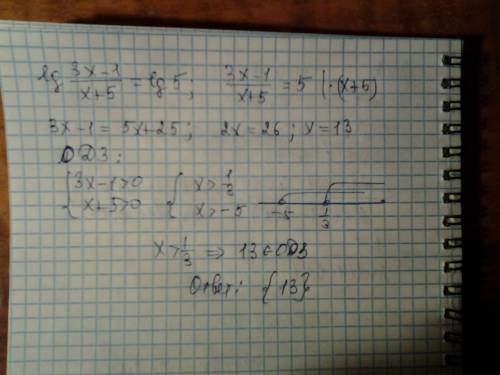 lg (3x-1)/(x+5) = lg 5; (3x-1)/(x+5) = 5 | ·(x+5)
3x-1 = 5x+25; 2x=26; x=13
ОДЗ:
{3x-1>0 {x>1/3
{x+5>0 {x>-5 -5 1/3
x>1/3 ⇒ 13∈ОДЗ
Ответ: {13}